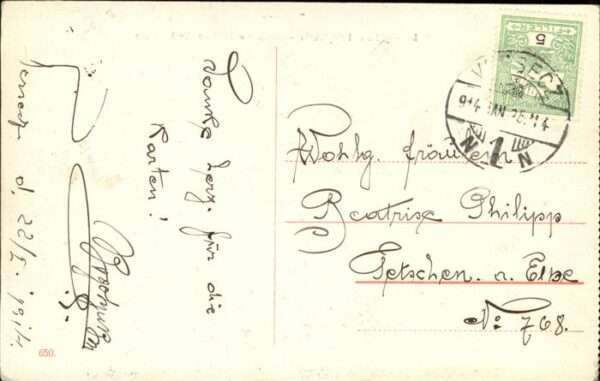 Danke herz. für die
Karten!
d. 22/I. 1914.
650.
FILLER
5
VERSECZ
914 JAN 26
N 1 N
Wohlg. Fräulein
Beatrise Philipp
Tetschen. a. Elbe
No: 768.